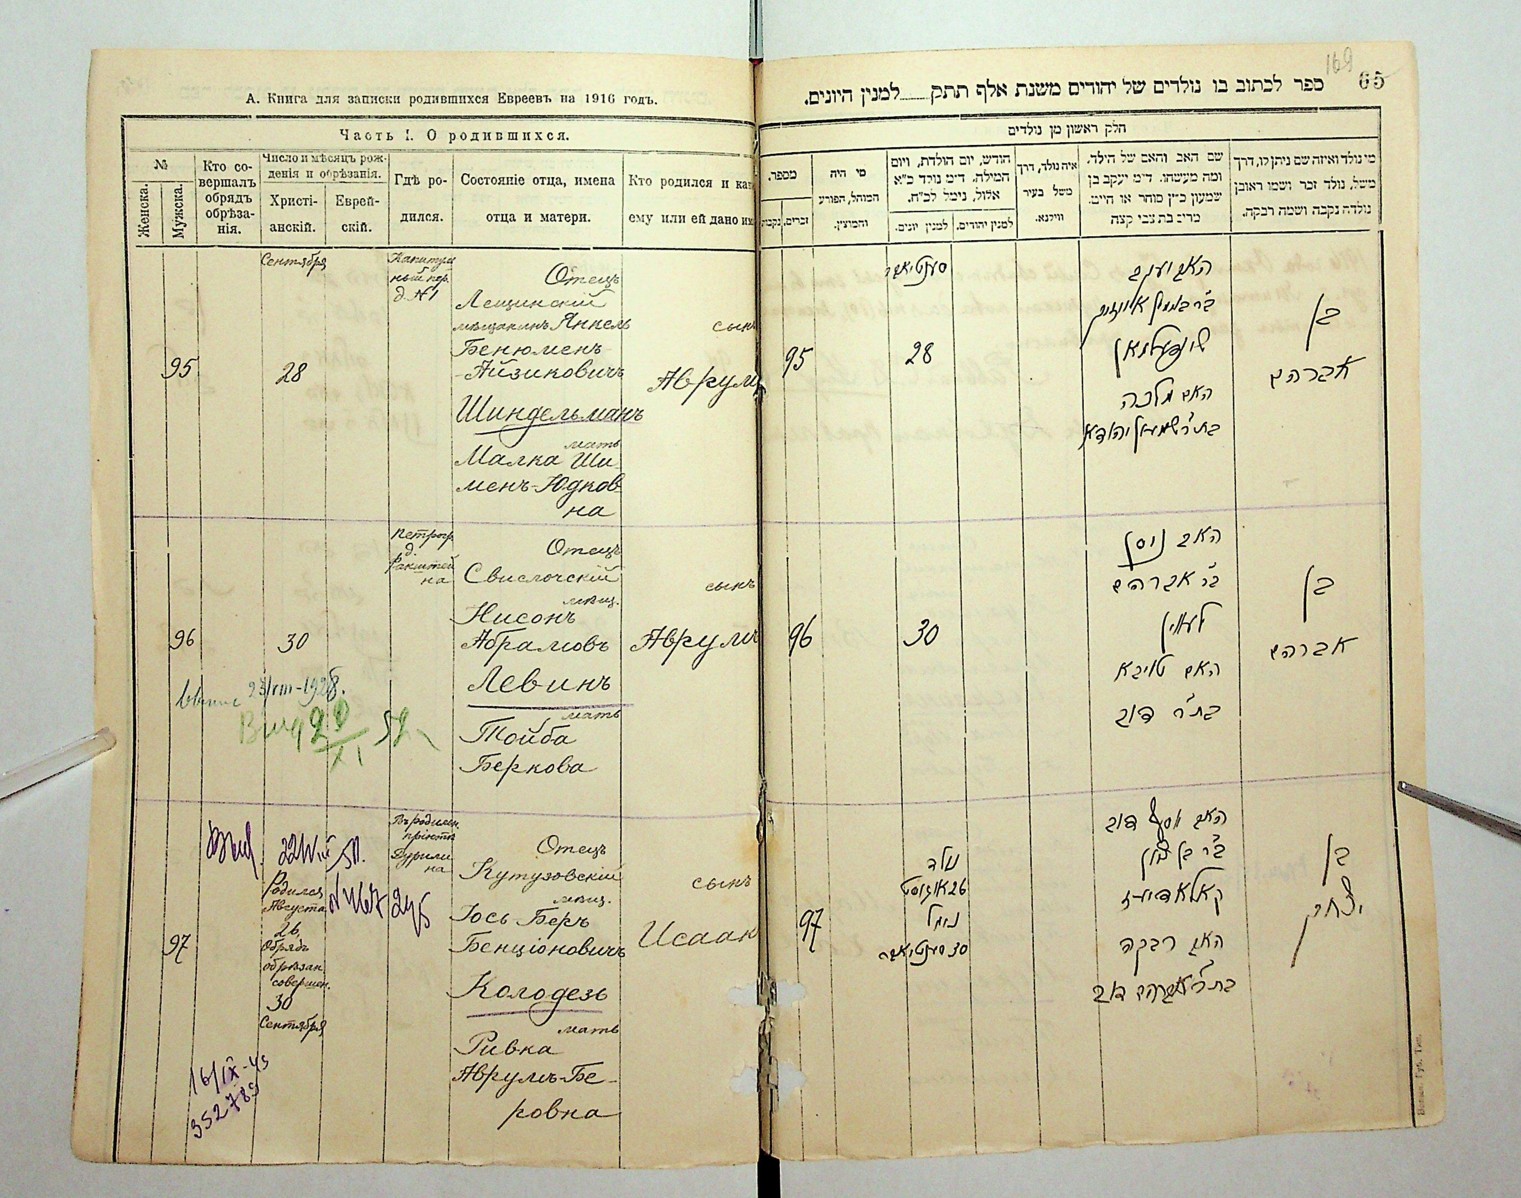 А. Книга для записки родившихся Евреевъ на 1916 годъ.
Часть I. О родившихся.
№
Женска.
Мужска.
Кто со-
вершалъ
обрядъ
обрѣза-
нія.
Число и мѣсяцъ рож-
денія и обрѣзанія.
Христі-
анскій.
Еврей-
скій.
Гдѣ ро-
дился.
Состояніе отца, имена
отца и матери.
Кто родился и ка
ему или ей дано им
95
Сентября
28
д. №1
Отецъ
Лещинскій
мѣщанинъ Янкель
Бенюменъ
-Айзиковичъ
Шиндельманъ
мать
Малка Ши-
менъ-Юдков-
на
сынъ
Аврумъ
96
30
Петрогр.
д.
Ракштей
на
Отецъ
Свислочскій
мѣщ.
Нисонъ
Абрамовъ
Левинъ
мать
Тойба
Беркова
сынъ
Аврумъ
23/VIII-1928.
97
Родился
Августа
26,
Обрядъ
обрѣзан.
совершен.
30
Сентября
Въ родилен.
пріютѣ
Дурили
на
Отецъ
Кутузовскій
мѣщ.
Іось Беръ
Бенціоновичъ
Колодезь
мать
Ривка
Аврумъ-Бе-
ровна
сынъ
Исаакъ
16/IX-45
352789
169
65
ספר לכתוב בו נולדים של יהודים משנת אלף תתק למנין היונים.
חלק ראשון מן נולדים
מספר.
זכרים.
נקבות
מי היה
המוהל, הפורע
והמוצץ.
חודש, יום הולדת, ויום
המילה. ד״מ נולד כ״א
אלול, נימל לכ״ח.
למנין יונים.
למנין יהודים.
איה נולד, דרך
משל בעיר
ווילנא.
שם האב והאם של הילד.
ומה מעשהו. ד״מ יעקב בן
שמעון כ״ץ סוחר או חייט.
מרים בת צבי קצה
מי נולד ואיזה שם ניתן לו, דרך
משל, נולד זכר ושמו ראובן
נולדה נקבה ושמה רבקה.
95
סענטיאבר
28
האב יעקב
שינדעלמאן
האם מלכה
בן
אברהם
96
30
האב ניסן
ב״ר אברהם
לעווין
האם טויבא
בת״ר דוב
בן
אברהם
97
נולד
26 אוגוסט
נימל
30 סענטיאבר
האב יוסף דוב
ב״ר בן ציון
האם רבקה
בת״ר אברהם דוב
בן
יצחק